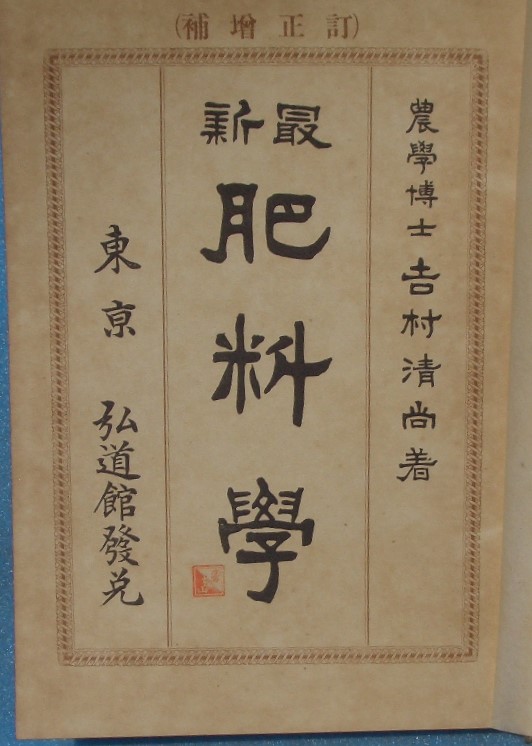 (訂正增補)
農學博士吉村清尚著
最新
肥料學
東京 弘道館發兌